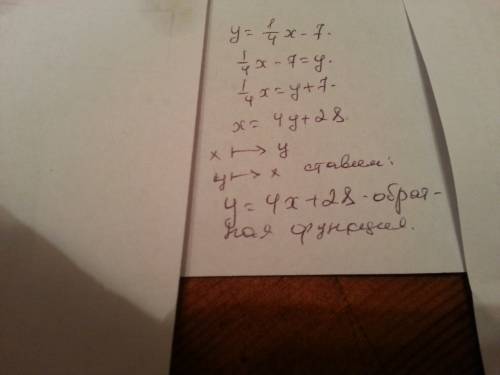 y = 1/4 x - 7.
1/4 x - 7 = y.
1/4 x = y + 7.
x = 4y + 28.
x ↦ y
y ↦ x ставим:
y = 4x + 28 - обрат-
ная функция.